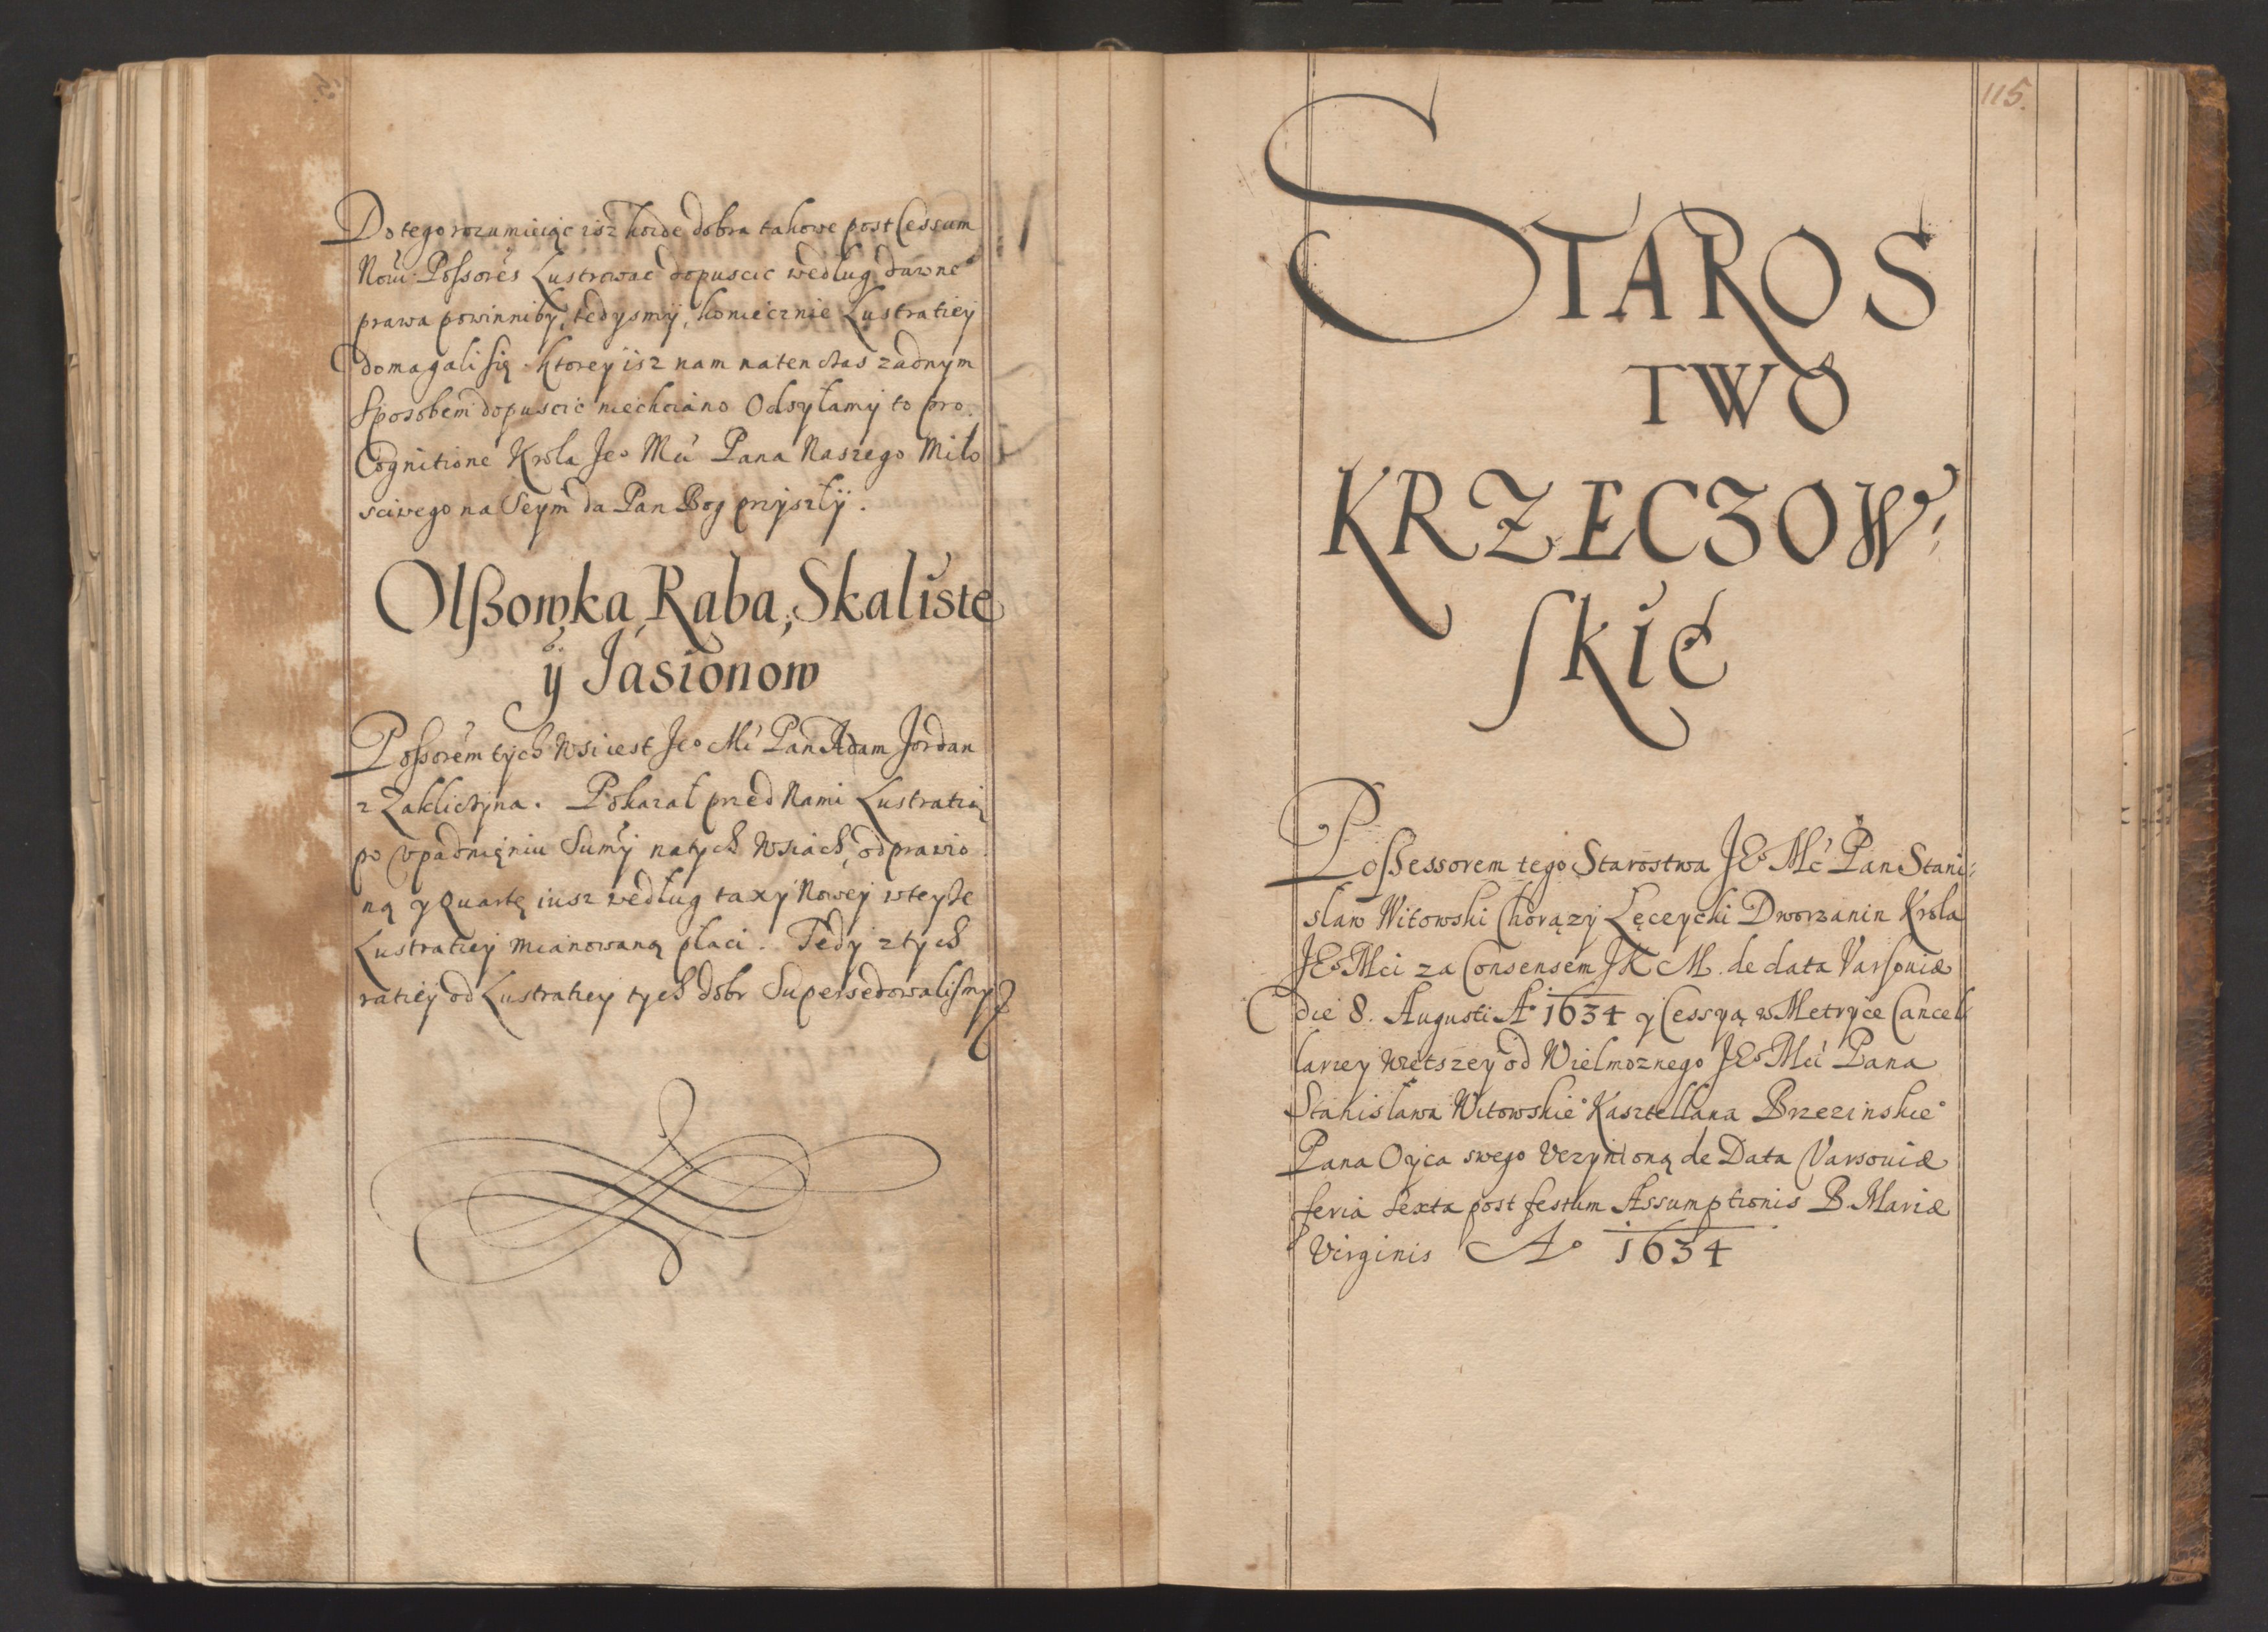 Do tego rozumieiąc isz każde dobra takowe post Cessum
Noui Possores Lustrować dopuscic według dawne°
prawa powinniby, tedysmy, koniecznie Lustratiey
domagali się ktorey isz nam naten czas zadnym
Sposobem dopuscic niechciano Odsyłamy to pro
Cognitione Krola Je° Mci Pana Naszego Miło
sciwego na Seym da Pan Bog przyszły.
Olßowka, Raba, Skaliste
ÿ Jasionow
Possorem tych Wsi iest Je° Mć Pan Adam Jordan
z Zakliczyna. Pokazał przed Nami Lustratią
po vpadnięniu Sumy na tych Wsiach, odprawio
ną y Quartę iusz według taxy Nowey w teyże
Lustratiey mianowaną płaci. Tedy z tych
ratiey od Lustratiey tych dobr Supersedowalismy
115.
STAROS
TWO
KRZECZOW
SKIE
Possessorem tego Starostwa JE° Mć Pan Stani
sław Witowski Chorązy Lęczycki Dworzanin Krola
JE° Mci za Consensem JKM. de data Varsouiæ
die 8. Augusti A° 1634 y Cessyą w Metryce Cancel
lariey Wietszey od Wielmoznego JE° Mci Pana
Stanisława Witowskie° Kasztellana Brzezinskie°
Pana Oyca swego Vczynioną de Data Varsouiæ
feria sexta post festum Assumptionis B. Mariæ
Virginis A° 1634